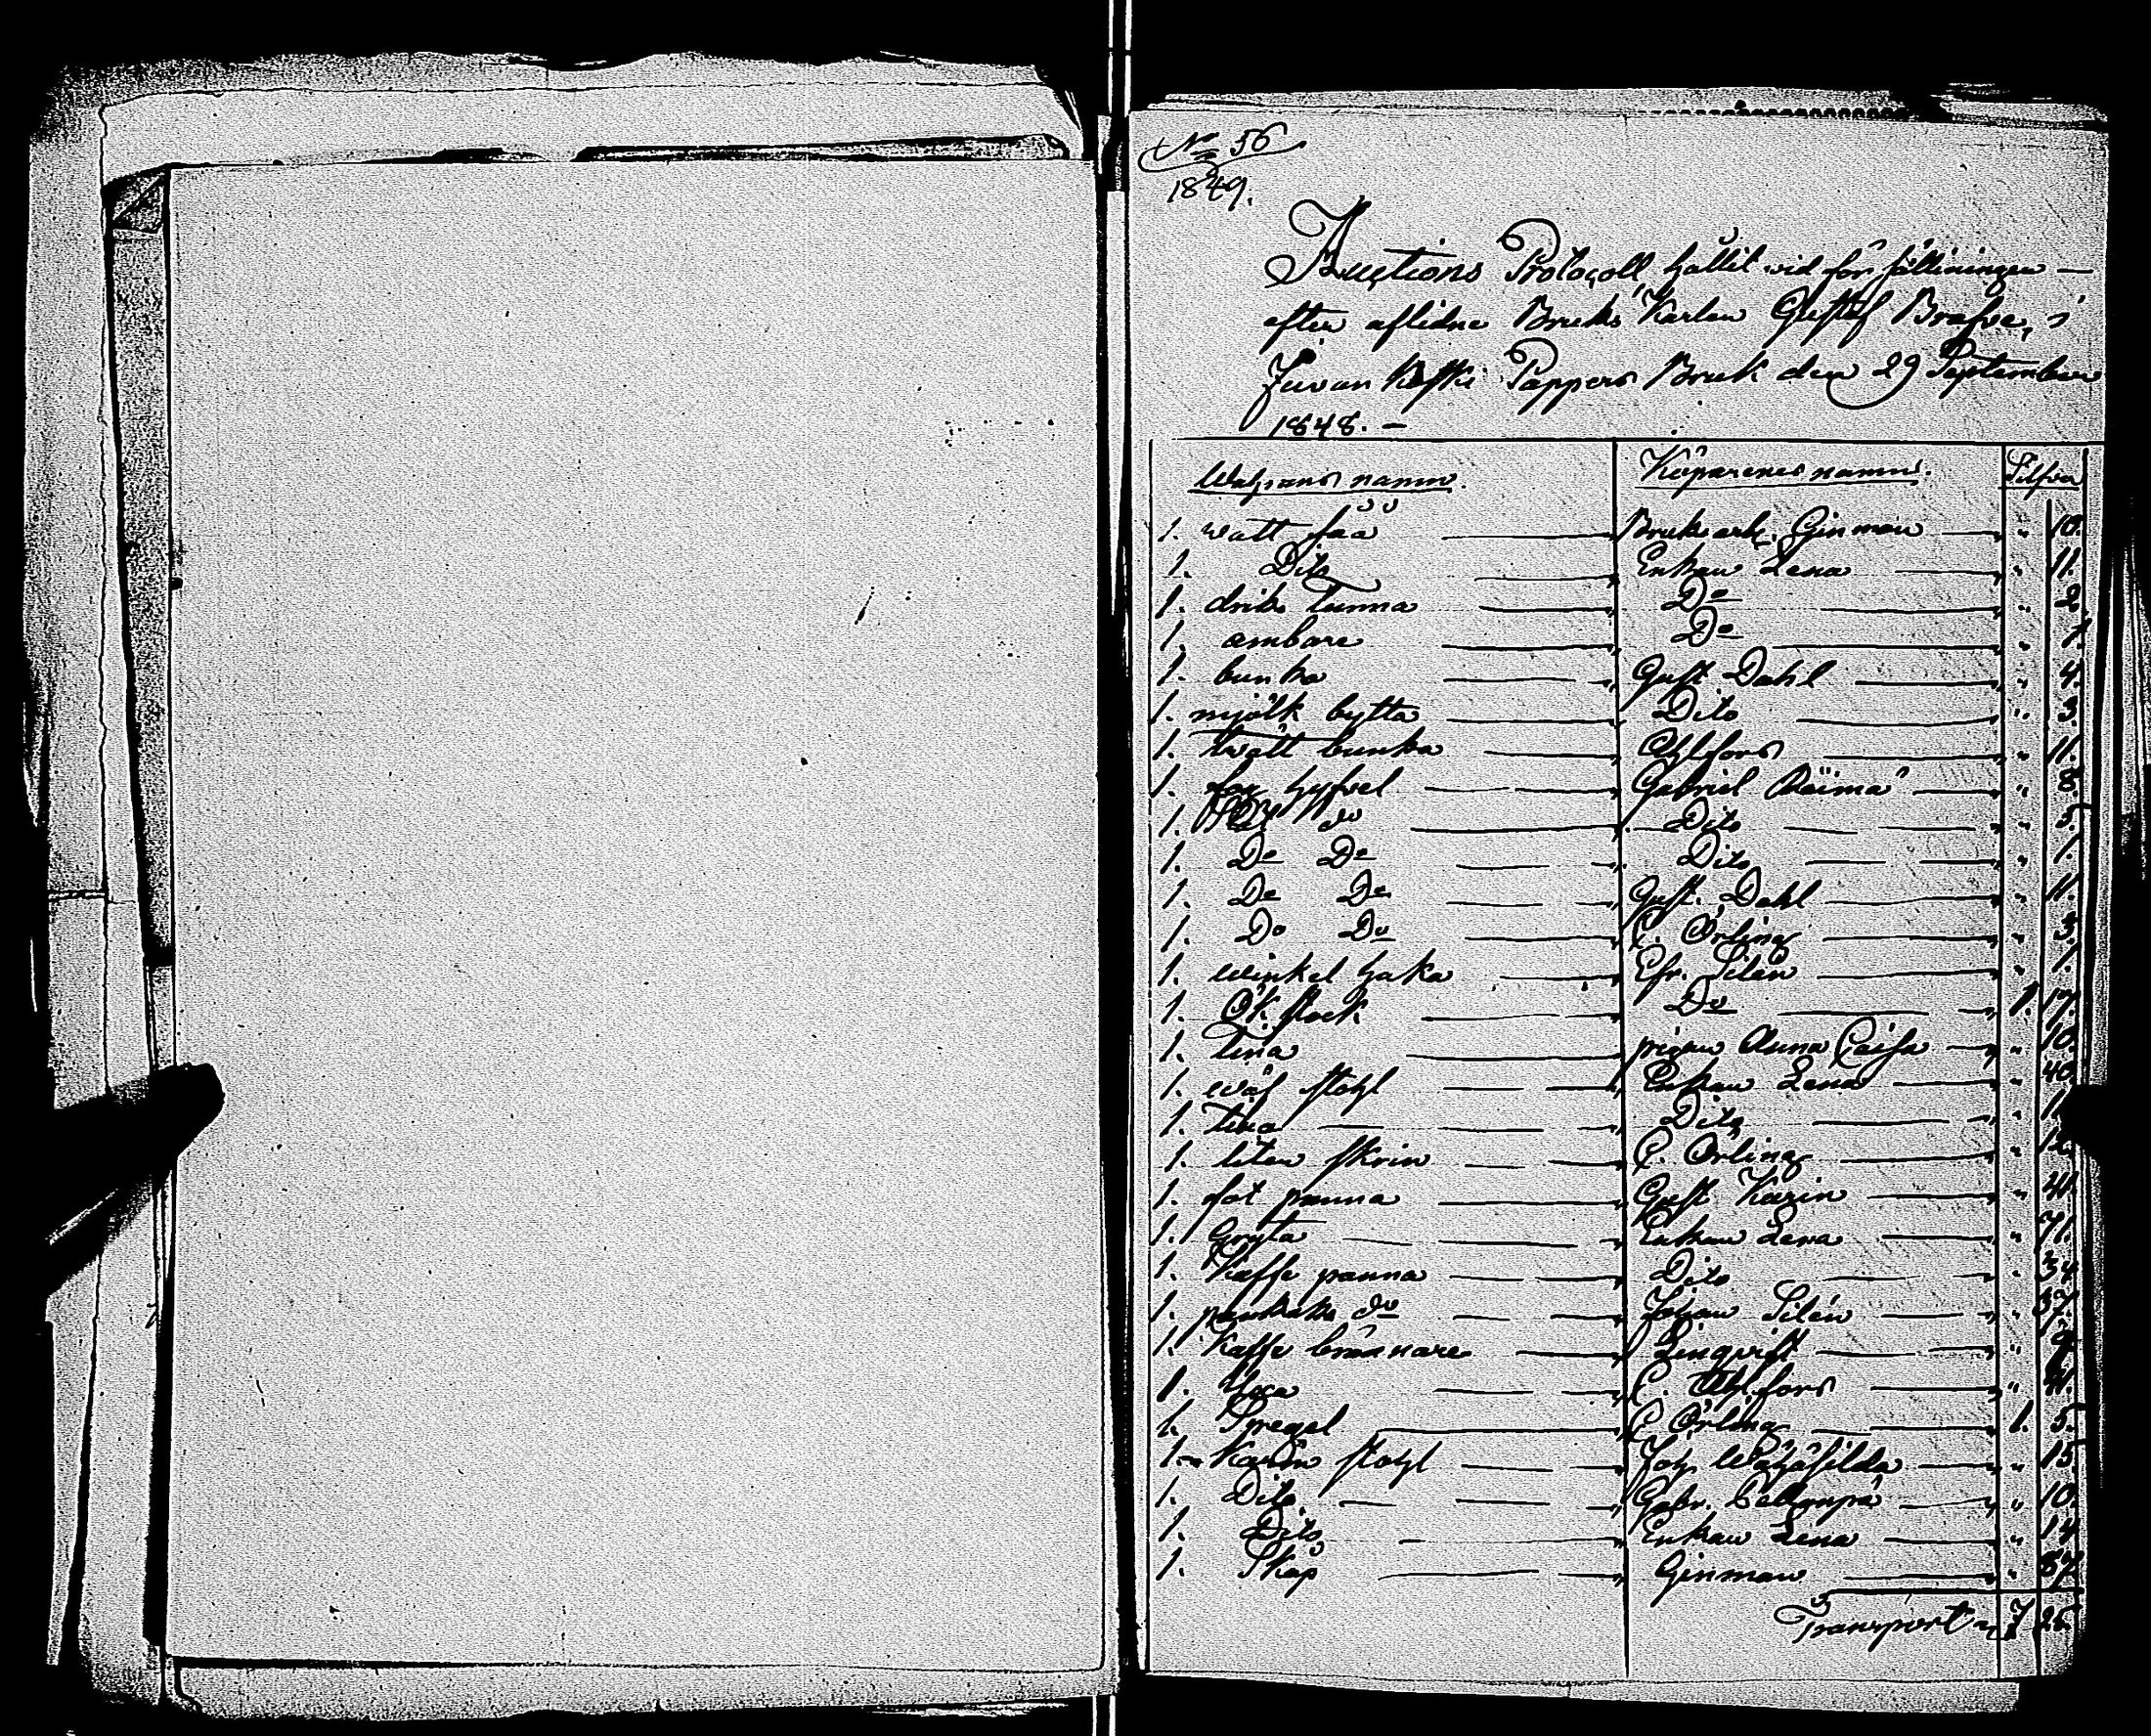 No 56
1849.
Auctions Protocoll hållit vid försälliningen —
efter aflidne Bruks Karlen Gustaf Brafve, i
Juvan Koski Pappers Bruk den 29 September
1848. —
Wahrans namn. Köparenes namn. Silfver
1. watt så Bruksarb. Ginman " 10.
1. Dito Enkan Lena " 11.
1. driks Tunna Do " 2.
1. ambare Do " 1.
1. bunka Gust Dahl " 4.
1. mjölk bytta Dito " 3.
1. twätt bunka Ahlfors " 11.
1. fog hyfvel Gabriel " 8.
1. do Dito " 5.
1. Do Do Dito " 1.
1. Do Do Gust. Dahl " 11.
1. Do Do C. Örling " 3.
1. winkel haka Efr. Silén " 1.
1. Ök stock Do 1. 17.
1. Tina pigan Anna Caisa " 10.
1. wäf stohl Enkan Lena " 40.
1. Tina Dito " 1.
1. liten skrin C. Örling " 12.
1. fot panna Gust Karin " 41.
1. Gryta Enkan Lena " 71.
1. Kaffe panna Dito " 34.
1. pankaks do Johan Silén " 37.
1. Kaffe brännare Linqvist " 9.
1. Yxa C. Ahlfors " 21.
1. Spegel C Örling 1. 5.
1. Karm stohl Joh " 15.
1. Dito Gabr. " 10.
1. Dito Enkan Lena " 14.
1. Skåp Ginman " 57.
Transport 7 25.